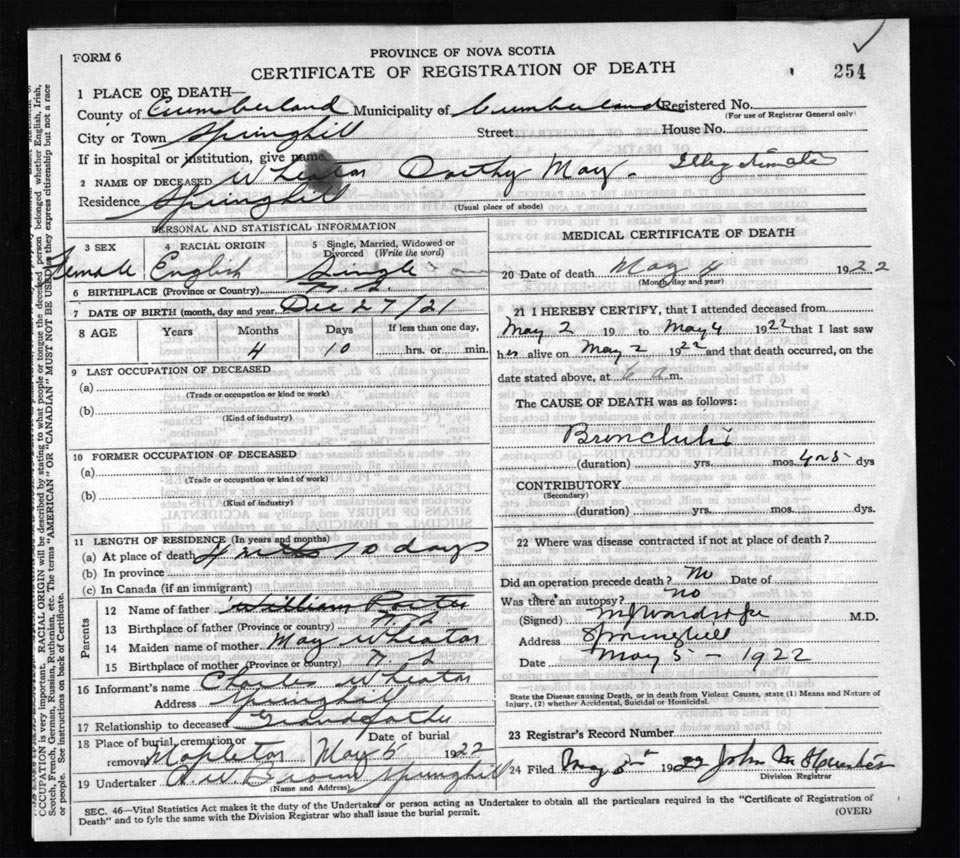 FORM 6
PROVINCE OF NOVA SCOTIA
CERTIFICATE OF REGISTRATION OF DEATH
254
1 PLACE OF DEATH—
County of Cumberland Municipality of Cumberland Registered No.
(For use of Registrar General only)
City or Town Springhill Street House No.
If in hospital or institution, give name
2 NAME OF DECEASED Wheaton Dorthy May. Illegitimate
Residence Springhill
(Usual place of abode)
PERSONAL AND STATISTICAL INFORMATION
3 SEX 4 RACIAL ORIGIN 5 Single, Married, Widowed or Divorced (Write the word)
Female English Single
6 BIRTHPLACE (Province or Country) N. S.
7 DATE OF BIRTH (month, day and year) Dec 27/21
8 AGE Years Months Days If less than one day,
4 10 hrs. or min.
9 LAST OCCUPATION OF DECEASED
(a)
(Trade or occupation or kind or work)
(b)
(Kind of industry)
10 FORMER OCCUPATION OF DECEASED
(a)
(Trade or occupation or kind of work)
(b)
(Kind of industry)
11 LENGTH OF RESIDENCE (In years and months)
(a) At place of death 4 10 days
(b) In province
(c) In Canada (if an immigrant)
Parents
12 Name of father William Porter
13 Birthplace of father (Province or country) N. S
14 Maiden name of mother May Wheaton
15 Birthplace of mother (Province or country) N. S
16 Informant's name Charles Wheaton
Address Springhill
17 Relationship to deceased Grandfather
18 Place of burial, cremation or removal Mapleton Date of burial May 5 1922
19 Undertaker Brown Springhill
(Name and Address)
MEDICAL CERTIFICATE OF DEATH
20 Date of death May 4 1922
(Month, day and year)
21 I HEREBY CERTIFY, that I attended deceased from
May 2 19 to May 4 1922 that I last saw
alive on May 2 1922 and that death occurred, on the
date stated above, at 6 a.m.
The CAUSE OF DEATH was as follows:
Bronchitis
(duration) yrs. mos. 4 or 5 dys
CONTRIBUTORY
(Secondary)
(duration) yrs. mos. dys.
22 Where was disease contracted if not at place of death?
Did an operation precede death? No Date of
Was there an autopsy? no
(Signed) Wardrope M.D.
Address Springhill
Date May 5 - 1922
State the Disease causing Death, or in death from Violent Causes, state (1) Means and Nature of
Injury, (2) whether Accidental, Suicidal or Homicidal.
23 Registrar's Record Number
24 Filed May 5th 1922 John
Division Registrar
SEC. 46—Vital Statistics Act makes it the duty of the Undertaker or person acting as Undertaker to obtain all the particulars required in the "Certificate of Registration of
Death" and to fyle the same with the Division Registrar who shall issue the burial permit.
(OVER)
OCCUPATION is very important. RACIAL ORIGIN will be described by stating to what people or tongue the deceased person belonged whether English, Irish,
Scotch, French, German, Russian, Ruthenian, etc. The terms "AMERICAN" OR "CANADIAN" MUST NOT BE USED as they express citizenship but not a race
or people. See instructions on back of Certificate.